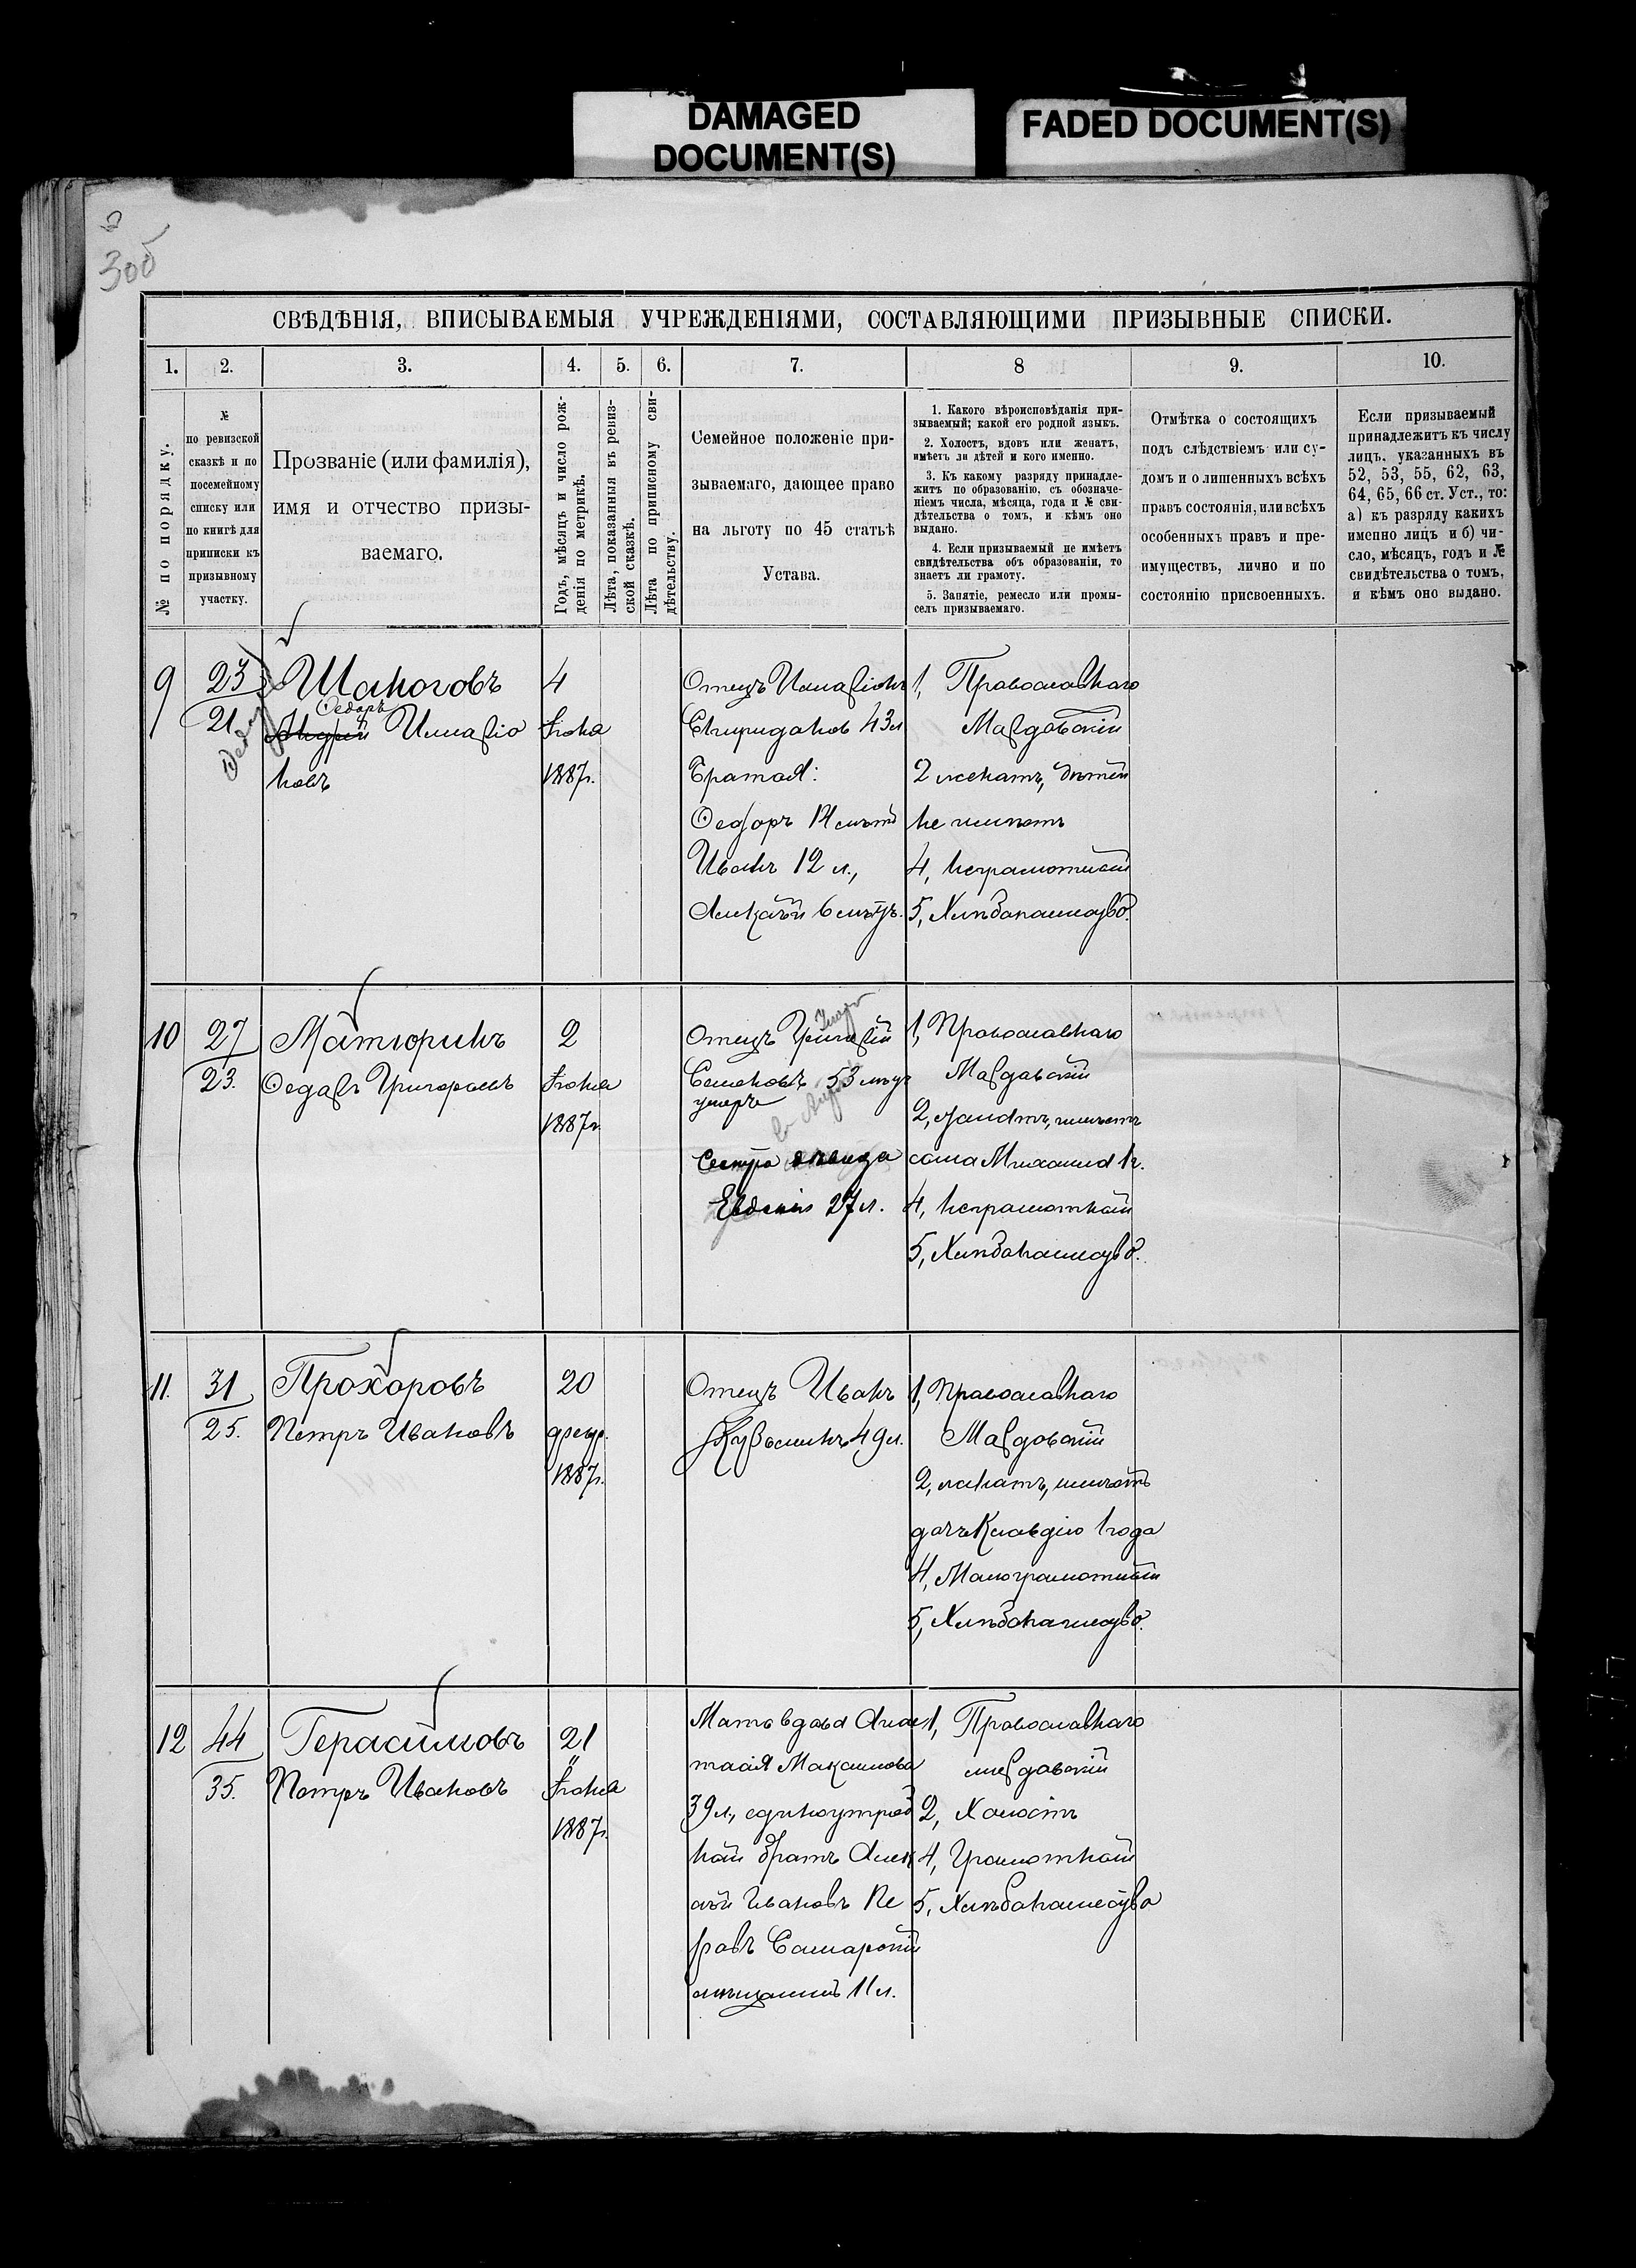 DAMAGED
DOCUMENT(S)
FADED DOCUMENT(S)
300
СВѢДѢНІЯ, ВПИСЫВАЕМЫЯ УЧРЕЖДЕНІЯМИ, СОСТАВЛЯЮЩИМИ ПРИЗЫВНЫЕ СПИСКИ.
1. 2. 3. 4. 5. 6. 7. 8 9. 10.
№ по порядку.
№
по ревизской
сказкѣ и по
посемейному
списку или
по книгѣ для
приписки къ
призывному
участку.
Прозваніе (или фамилія),
имя и отчество призы-
ваемаго.
Годъ, мѣсяцъ и число рож-
денія по метрикѣ.
Лѣта, показанныя въ ревиз-
ской сказкѣ.
Лѣта по приписному сви-
дѣтельству.
Семейное положеніе при-
зываемаго, дающее право
на льготу по 45 статьѣ
Устава.
1. Какого вѣроисповѣданія при-
зываемый; какой его родной языкъ.
2. Холостъ, вдовъ или женатъ,
имѣетъ ли дѣтей и кого именно.
3. Къ какому разряду принадле-
житъ по образованію, съ обозначе-
ніемъ числа, мѣсяца, года и № сви-
дѣтельства о томъ, и кѣмъ оно
выдано.
4. Если призываемый не имѣетъ
свидѣтельства объ образованіи, то
знаетъ ли грамоту.
5. Занятіе, ремесло или промы-
селъ призываемаго.
Отмѣтка о состоящихъ
подъ слѣдствіемъ или су-
домъ и о лишенныхъ всѣхъ
правъ состоянія, или всѣхъ
особенныхъ правъ и пре-
имуществъ, лично и по
состоянію присвоенныхъ.
Если призываемый
принадлежитъ къ числу
лицъ, указанныхъ въ
52, 53, 55, 62, 63,
64, 65, 66 ст. Уст., то:
а) къ разряду какихъ
именно лицъ и б) чи-
сло, мѣсяцъ, годъ и №
свидѣтельства о томъ,
и кѣмъ оно выдано.
9
23
21
Шаноговъ
Ѳедоръ
Андрей Илларіо
новъ
4
Іюня
1887г.
Отецъ Илларіонъ
Спиридонов 43л
Братья:
Ѳедоръ 14 лѣтъ
Иванъ 12 л.,
Алексѣй 6 лѣтъ.
1, Православнаго
Мордовскій
2 женатъ, дѣтей
не имѣетъ
4, Неграмотный
5, Хлѣбопашество.
10
27
23.
Матюринъ
Ѳедоръ Григорьевъ
2
Іюня
1887г.
Отецъ Григорій
Семеновъ 53 лѣтъ
умеръ
Сестра дѣвица
Евдокія 27 л.
1, Православнаго
Мордовскій
2, женатъ, имѣетъ
сына Михаила 1г.
4, Неграмотный
5, Хлѣбопашество.
11.
31
25.
Прохоровъ
Петръ Ивановъ
20
1887г.
Отецъ Иванъ
Кузьминъ 49л.
1, Православнаго
Мордовскій
2, женатъ, имѣетъ
дочь Клавдію 1 года
4, Малограмотный
5, Хлѣбопашество.
12
44
35.
Герасимовъ
Петръ Ивановъ
21
Іюня
1887г.
Мать вдова Анас
тасія Максимова
39л., единоутроб
ный братъ Алек
сѣй Ивановъ Пе
ровъ Самарскій
мѣщанинъ 11л.
1, Православнаго
мордовскій
2, Холостъ
4, Грамотный
5, Хлѣбопашество